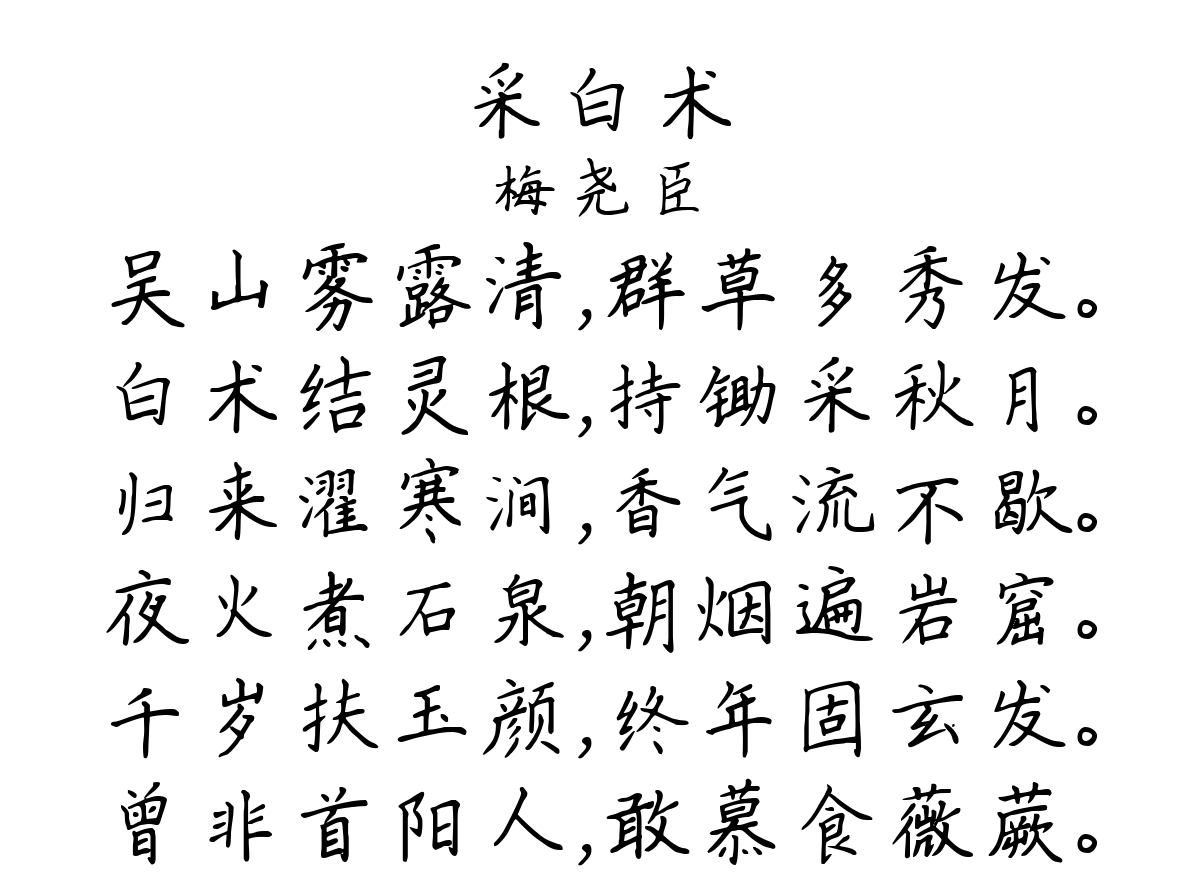 采白术
梅尧臣
吴山雾露清,群草多秀发。
白术结灵根,持锄采秋月。
归来濯寒涧,香气流不歇。
夜火煮石泉,朝烟遍岩窟。
千岁扶玉颜,终年固玄发。
曾非首阳人,敢慕食薇蕨。